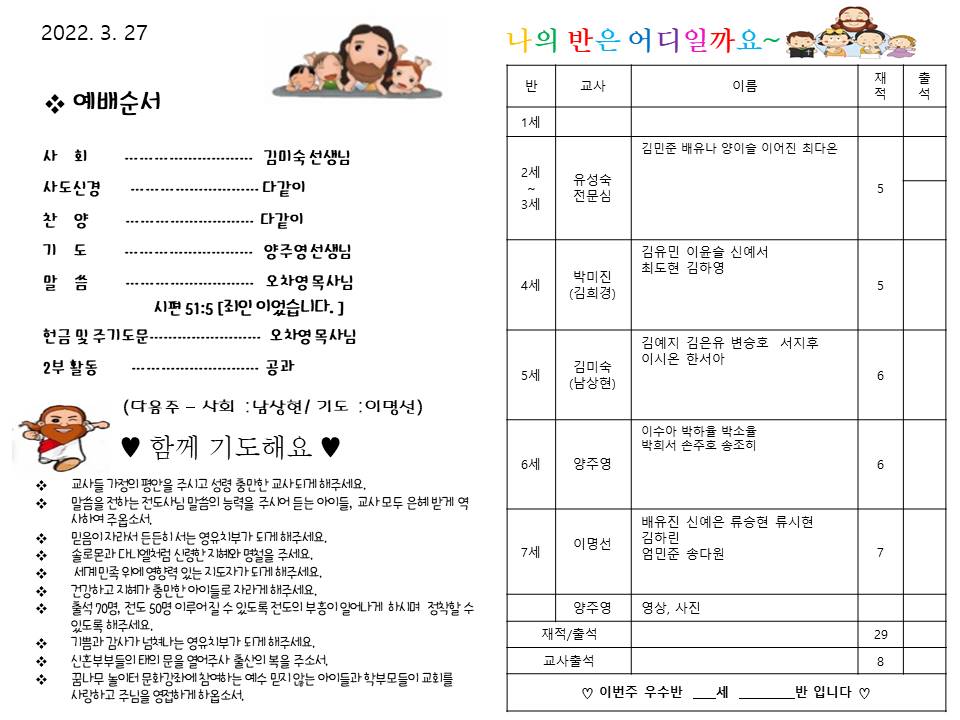 2022. 3. 27
❖ 예배순서
사 회 ---------------------------- 김미숙선생님
사도신경 ---------------------------- 다같이
찬 양 ---------------------------- 다같이
기 도 ---------------------------- 양주영선생님
말 씀 ---------------------------- 오차영목사님
시편 51:5 [죄인 이었습니다. ]
헌금 및 주기도문------------------------ 오차영목사님
2부 활동 ---------------------------- 공과
(다음주 – 사회 :남상현/ 기도 :이명선)
♥ 함께 기도해요 ♥
❖ 교사들 가정의 평안을 주시고 성령 충만한 교사되게 해주세요.
❖ 말씀을 전하는 전도사님 말씀의 능력을 주시어 듣는 아이들, 교사 모두 은혜 받게 역
사하여 주옵소서.
❖ 믿음이 자라서 든든히 서는 영유치부가 되게 해주세요.
❖ 솔로몬과 다니엘처럼 신령한 지혜와 명철을 주세요.
❖ 세계 민족 위에 영향력 있는 지도자가 되게 해주세요.
❖ 건강하고 지혜가 충만한 아이들로 자라게 해주세요.
❖ 출석 70명, 전도 50명 이루어질 수 있도록 전도의 부흥이 일어나게 하시며 정착할 수
있도록 해주세요.
❖ 기쁨과 감사가 넘쳐나는 영유치부가 되게 해주세요.
❖ 신혼부부들의 태의 문을 열어주사 출산의 복을 주소서.
❖ 꿈나무 놀이터 문화강좌에 참여하는 예수 믿지 않는 아이들과 학부모들이 교회를
사랑하고 주님을 영접하게 하옵소서.
나의 반은 어디일까요~
반 교사 이름 재적 출석
1세
2세 ~ 3세 유성숙 전문심 김민준 배유나 양이슬 이어진 최다온 5
4세 박미진 (김희경) 김유민 이윤슬 신예서
최도현 김하영 5
5세 김미숙 (남상현) 김예지 김은유 변승호 서지후
이시온 한서아 6
6세 양주영 이수아 박하율 박소율
박희서 손주호 송조히 6
7세 이명선 배유진 신예은 류승현 류시현
김하린
엄민준 송다원 7
양주영 영상, 사진
재적/출석 29
교사출석 8
♡ 이번주 우수반 ___세 ________반 입니다 ♡